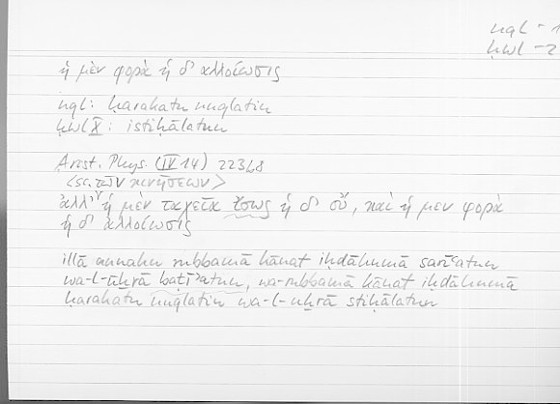 nql – 1
ḥwl – 2
ἡ μὲν φορὰ ἡ δ' ἀλλοίωσις
nql: ḥarakatu nuqlatin
ḥwl X: istiḥālatun
Arist. Phys. (IV 14) 223b8
<sc. τῶν κινήσεων>
ἀλλ' ἡ μὲν ταχεῖα ἴσως ἡ δ' οὔ, καὶ ἡ μὲν φορὰ
ἡ δ' ἀλλοίωσις
illā annahu rubbamā kānat iḥdāhumā sarīʿatun
wa-l-uḫrā baṭīʾatun, wa-rubbamā kānat iḥdāhumā
ḥarakatu nuqlatin wa-l-uḫrā stiḥālatun